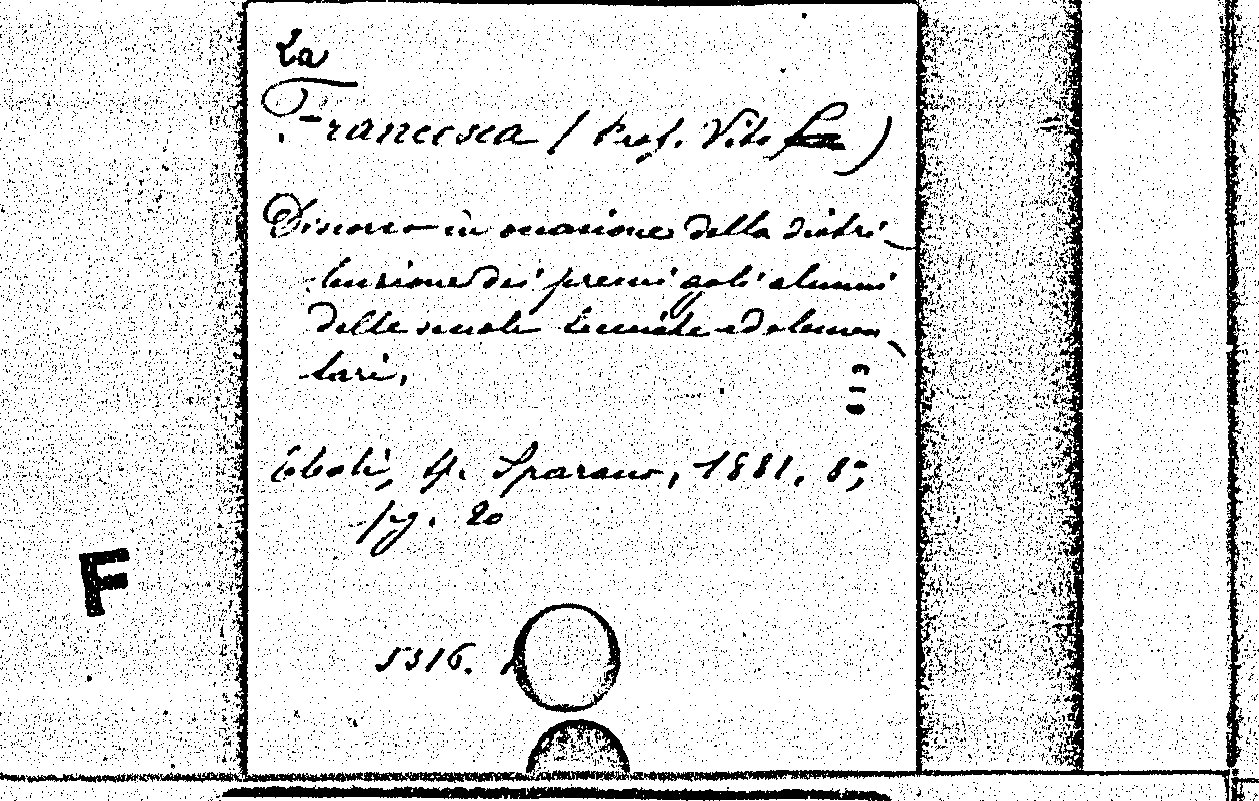 La
Francesca (Prof. Vito La)
Discorso in occasione della distri-
buzione dei premi agli alunni
delle scuole tecniche ed elemen-
tari,
Eboli, Sparano, 1881. 8°,
pg. 20
F
5316.